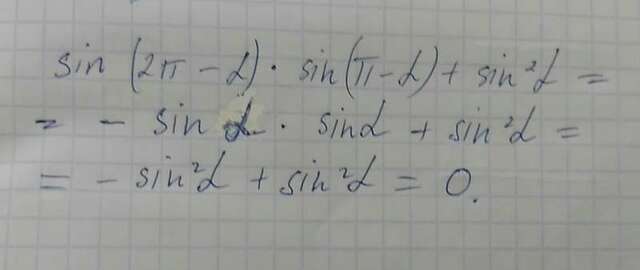 sin (2π - α) · sin(π - α) + sin²α =
= - sin α · sinα + sin²α =
= - sin²α + sin²α = 0.